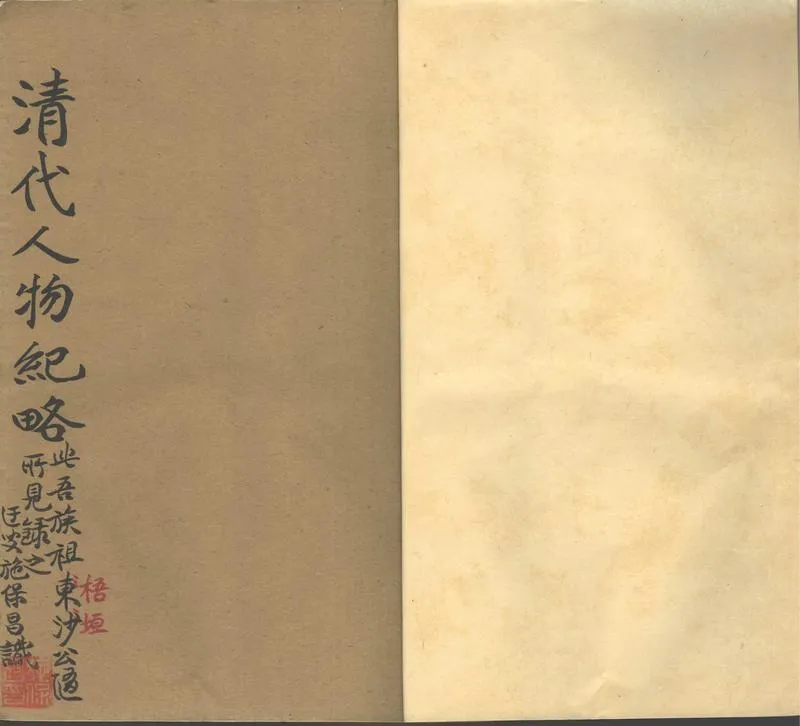 清代人物紀略
梧垣
此吾族祖東沙公
所見錄之
迂叟施保昌識